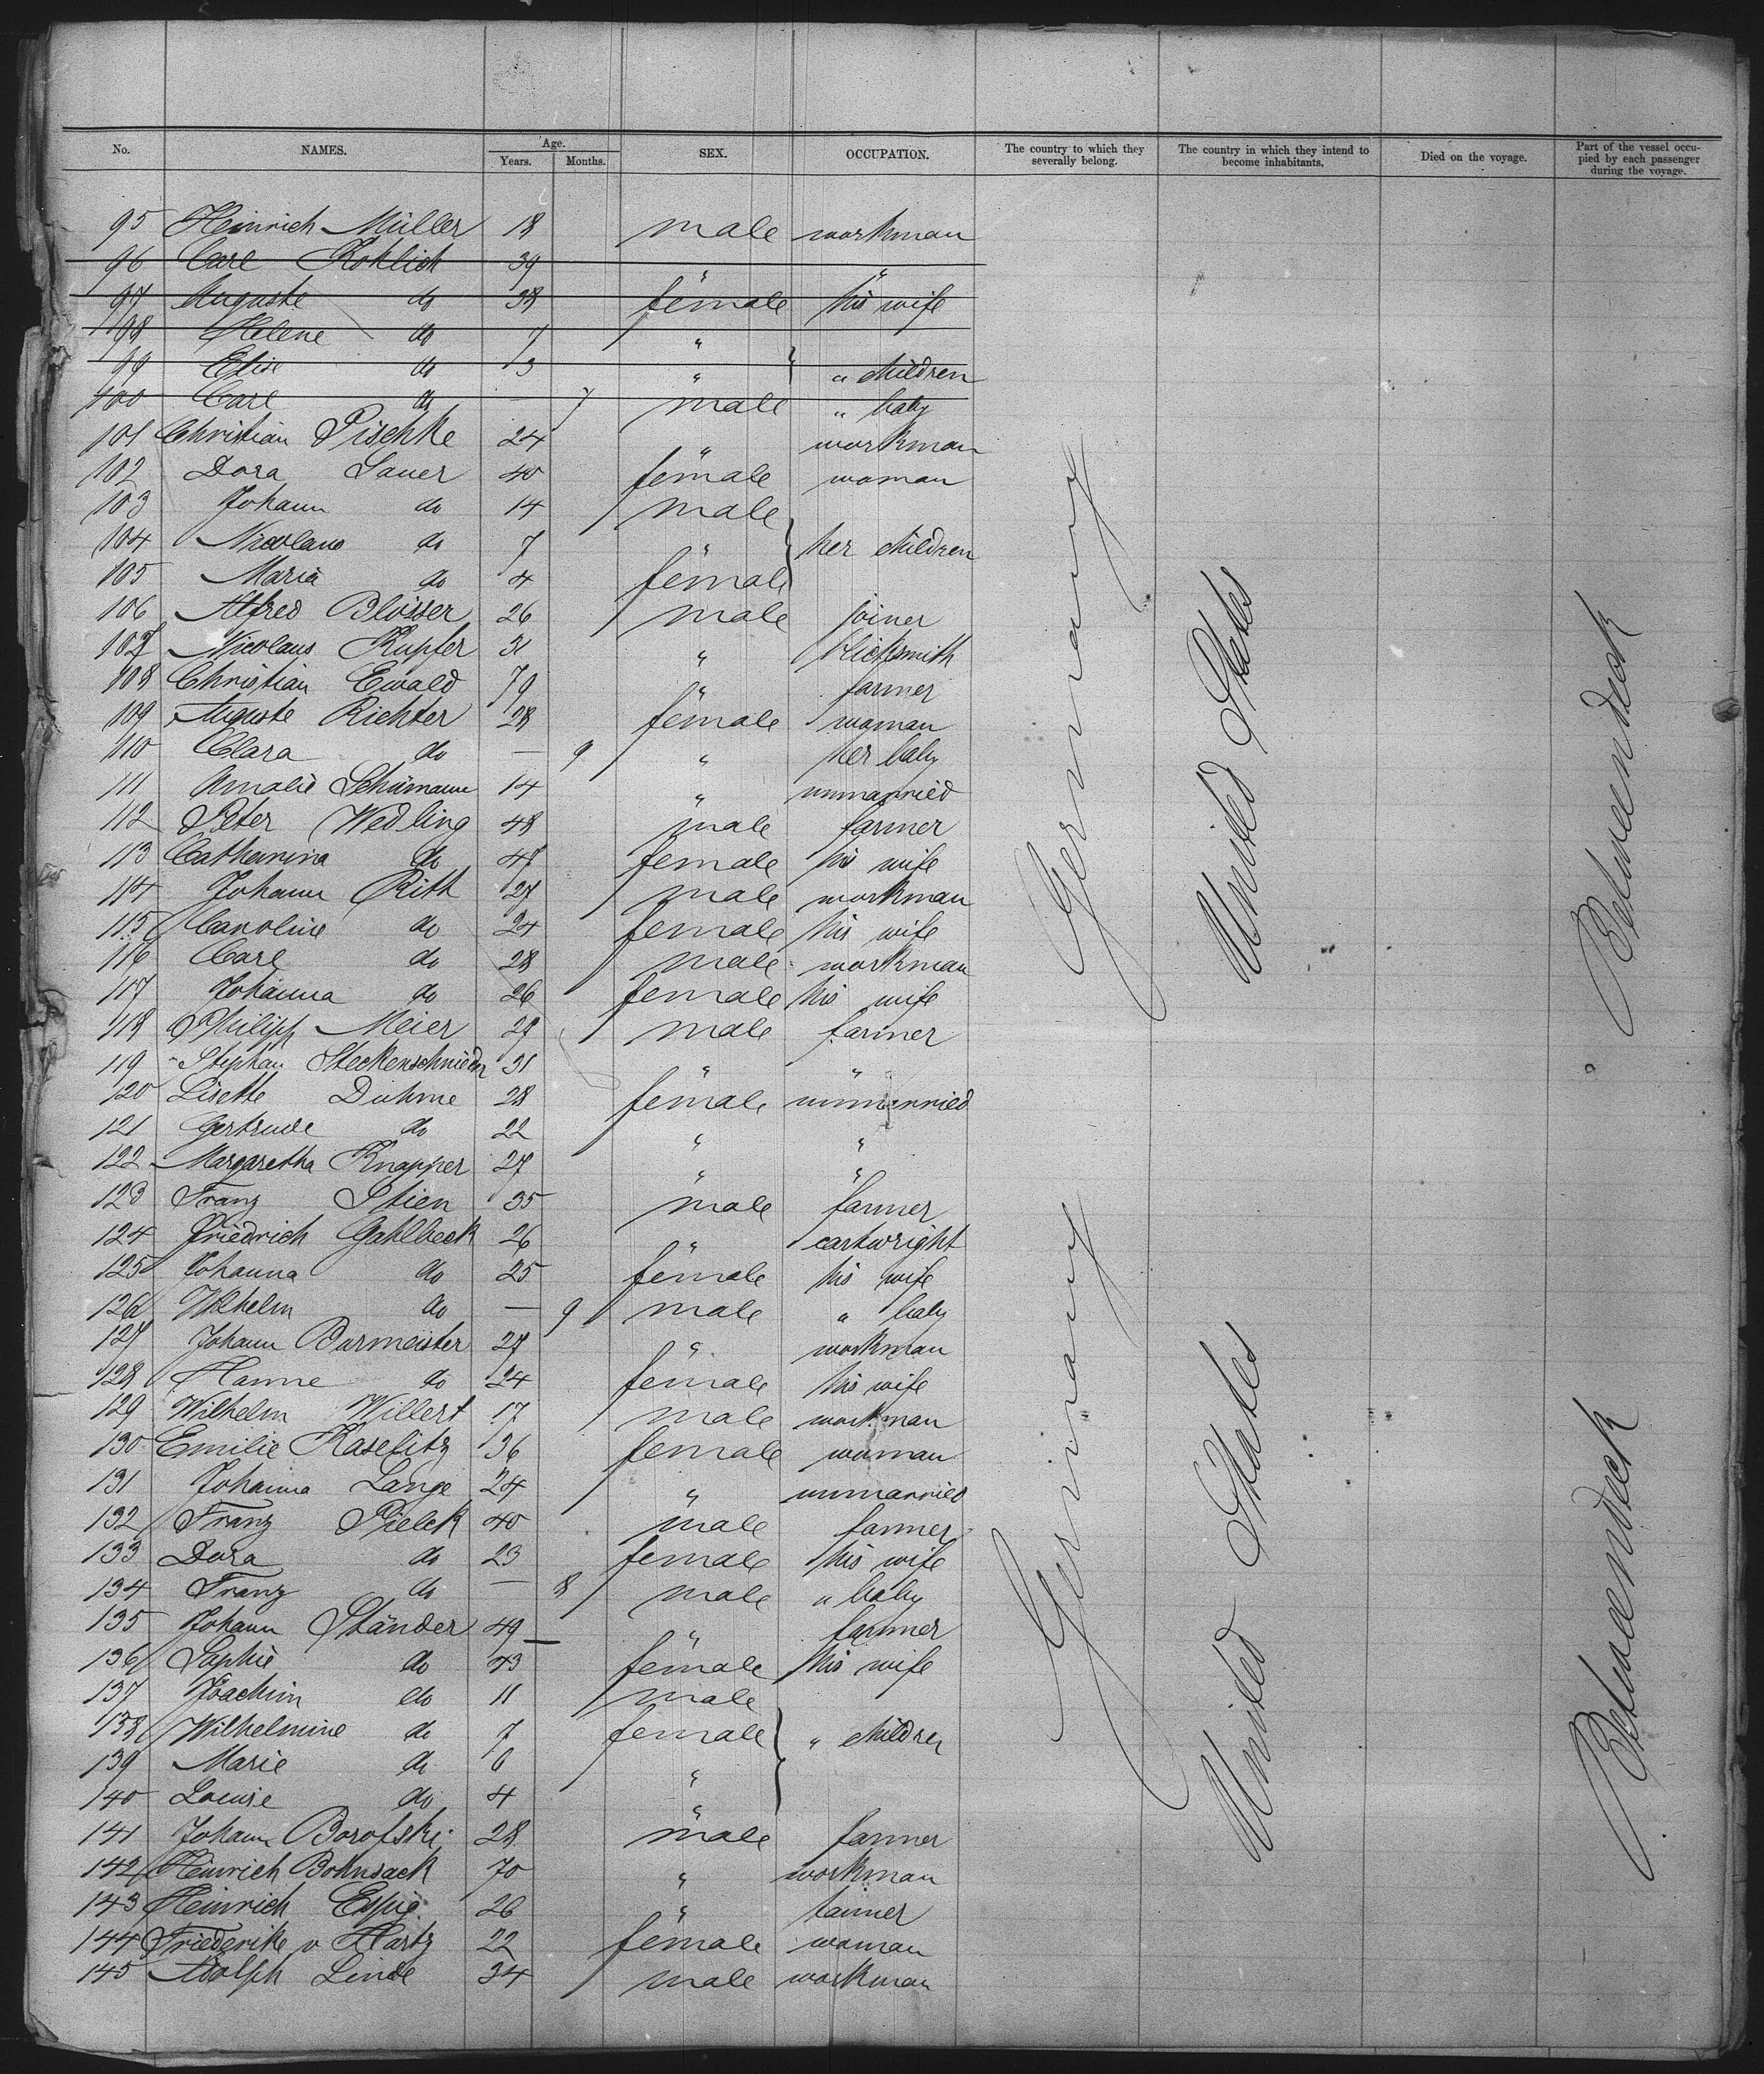 No. NAMES. Age. Years. Months. SEX. OCCUPATION. The country to which they severally belong. The country in which they intend to become inhabitants. Died on the voyage. Part of the vessel occupied by each passenger during the voyage.
95 Heinrich Müller 18 male workman
96 Carl Kohlich 39 " "
97 Auguste do 38 female his wife
98 Helene do 7 "
99 Elise do 3 " " children
100 Carl do — 7 male " baby
101 Christian Pischke 24 " workman
102 Dora Sauer 40 female woman
103 Johann do 14 male
104 Nicolaus do 7 " her children
105 Maria do 4 female
106 Alfred Blösser 26 male joiner
107 Nicolaus Kupfer 31 "
108 Christian Ewald 79 " farmer
109 Auguste Richter 28 female woman
110 Clara do — 9 " her baby
111 Amalie Schümann 14 " unmarried
112 Peter Wedling 48 male farmer
113 Catharina do 47 female his wife
114 Johann Rith 27 male workman
115 Caroline do 24 female his wife
116 Carl do 28 male workman
117 Johanna do 26 female his wife
118 Philipp Meier 27 male farmer
119 Stephan Steckenschnieder 31 " "
120 Lisette Duhme 28 female unmarried
121 Gertrude do 22 " "
122 Margaretha Knapper 27 " "
123 Franz Stien 35 male farmer
124 Friedrich Gahlbeck 26 " cartwright
125 Johanna do 25 female his wife
126 Wilhelm do — 9 male " baby
127 Johann Burmeister 27 " workman
128 Hanne do 24 female his wife
129 Wilhelm Willert 17 male workman
130 Emilie Kaselitz 36 female woman
131 Johanna Lange 24 " unmarried
132 Franz Pielck 40 male farmer
133 Dora do 23 female his wife
134 Franz do — 8 male " baby
135 Johann Ständer 49 " farmer
136 Sophie do 43 female his wife
137 Joachim do 11 male
138 Wilhelmine do 7 female " children
139 Marie do 6 "
140 Louise do 4 "
141 Johann Borofski 28 male farmer
142 Heinrich Bohnsack 70 " workman
143 Heinrich Espig 26 "
144 Friederike v Hartz 22 female woman
145 Adolph Linde 34 male workman
Germany
United States
Betweendeck
Germany
United States
Betweendeck